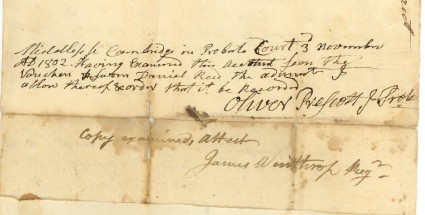 Middlesex Cambridge in Probate Court 3 November
AD 1802. Having Examined this account seen the
Vouchers & Sworn Daniel the administ I
allow thereof & order that it be Recorded
Oliver Prescott J Prob
Copy examined, attest
James Winthrop Regr